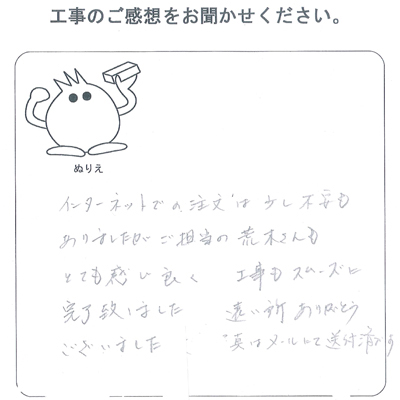 工事のご感想をお聞かせください。
ぬりえ
インターネットでの注文は少し不安も
ありましたがご担当の荒木さんも
とても感じ良く 工事もスムーズに
完了致しました 遠い所ありがとう
ございました 真はメールにて送付済です